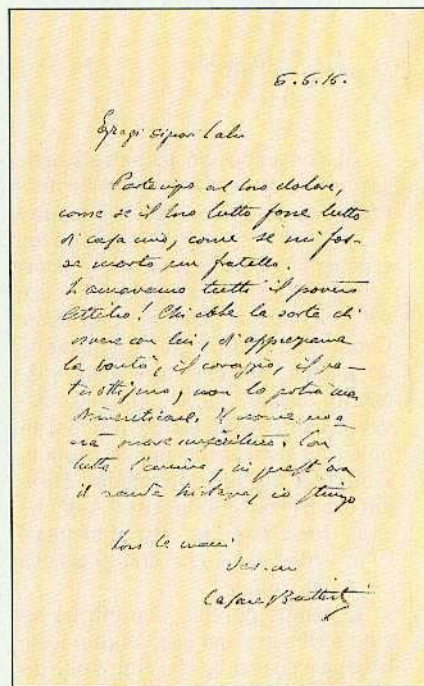 5.5.16.
Egregi signori Calvi
Partecipo al loro dolore,
come se il loro lutto fosse lutto
di casa mia, come se mi fos-
se morto un fratello.
L'amavamo tutti il povero
Attilio! Chi ebbe la sorte di
vivere con lui, d'apprezzarne
la bontà, il coraggio, il pa-
triottismo, non lo potrà mai
dimenticare. Il nome
Con
tutta l'anima, in quest'ora
di grande tristezza, io stringo
loro le mani
Cesare Battisti